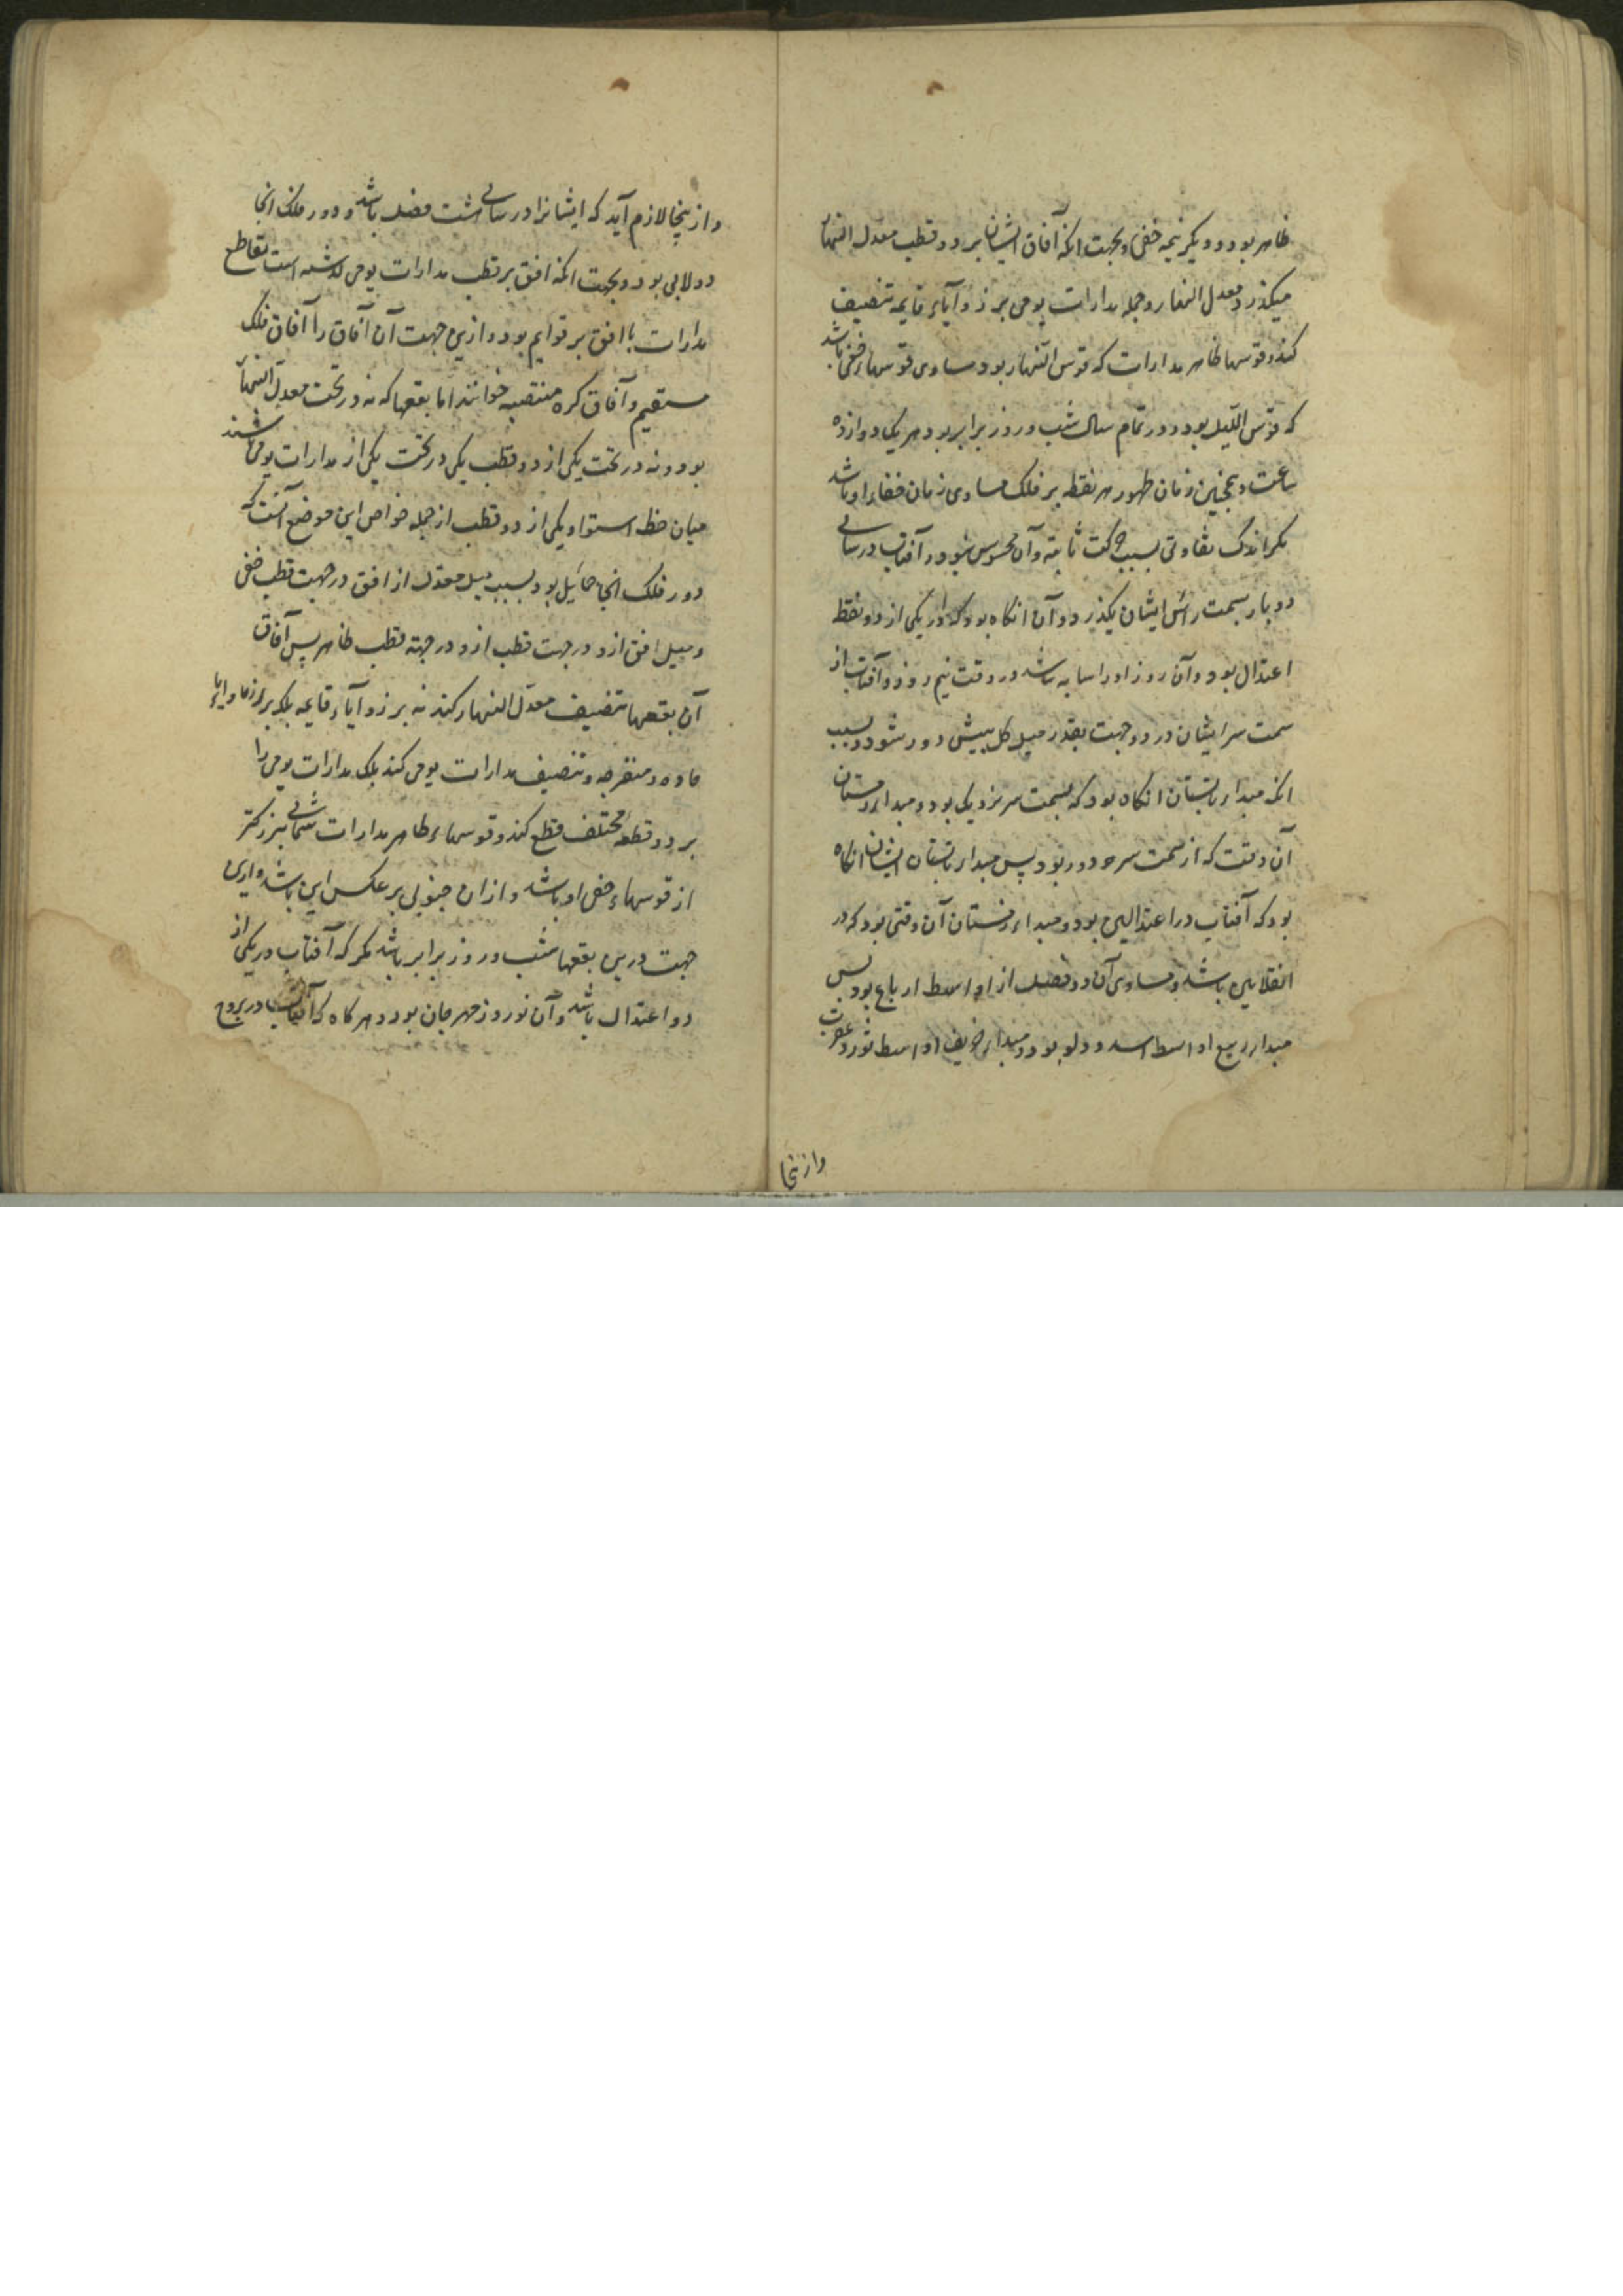 ظاهر بود و دیگر نیمه خفی و بجهت انکه آفاق ایشان بر دو قطب معدل النهار
میکذرد و معدل النهار و جمله مدارات یومی بر زوآیاء قایمه تنصیف
کند و قوسها ظاهر مدارات که قوس النهار بود مساوی قوسهاء خفی باشد
که قوس اللیل بود و در تمام سال شب و روز برابر بود هر یک دوازده
ساعت و همچنین زمان ظهور هر نقطه بر فلک مساوی زمان خفاء او باشد
مکر اندک تفاوتی بسبب حرکت ثانیه و آن محسوس نبود و آفتاب در سالی
دو بار بسمت راس ایشان بکذرد و آن انکاه بود که در یکی از دو نقطه
اعتدال بود و آن روز او را سایه نباشد در وقت نیم روز و آفتاب از
سمت سر ایشان در دو جهت بقدر میل کل بیش دور نشود و بسبب
انکه مبداء تابستان انکاه بود که بسمت سر نزدیک بود و مبداء زمستان
آن وقت که از سمت سر دور بود پس مبداء تابستان ایشان انکاه
بود که آفتاب در اعتدالین بود و مبداء زمستان آن وقتی بود که در
انقلابین باشد و مساوی آن دو فصل از اواسط ارباع بود پس
مبداء ربیع اواسط اسد و دلو بود و مبداء خریف اواسط ثور و عقرب
وازینجا
وازینجا لازم آید که ایشانرا در سالی هشت فصل باشد و دور فلک انجا
دولابی بود و بجهت انکه افق بر قطب مدارات یومی کذشته است تقاطع
مدارات با افق بر قوایم بود و ازین جهت آن آفاق را آفاق فلک
مستقیم و آفاق کره منتصبه خوانند اما بقعها که نه در تحت معدل النهار
بود و نه در تحت یکی از دو قطب یکی در تحت یکی از مدارات یومی باشند
میان خط استوا و یکی از دو قطب از جمله خواص این موضع آنست که
دور فلک انجا حمایل بود بسبب میل معدل از افق در جهت قطب خفی
و میل افق ازو در جهت قطب ازو در جهة قطب ظاهر پس آفاق
آن بقعها تنصیف معدل النهار کند نه بر زوآیاء قایمه بلکه بر زوایاء
حاده و منفرجه و تنصیف مدارات یومی کند بلک مدارات یومی را
بر دو قطعه مختلف قطع کند و قوسهاء ظاهر مدارات شمالی بزرکتر
از قوسهاء خفی او باشد و ازان جنوبی بر عکس این باشد و ازین
جهت درین بقعها شب و روز برابر باشد مکر که آفتاب در یکی از
دو اعتدال باشد و آن نوروز مهرجان بود و هر کاه که آفتاب در بروج